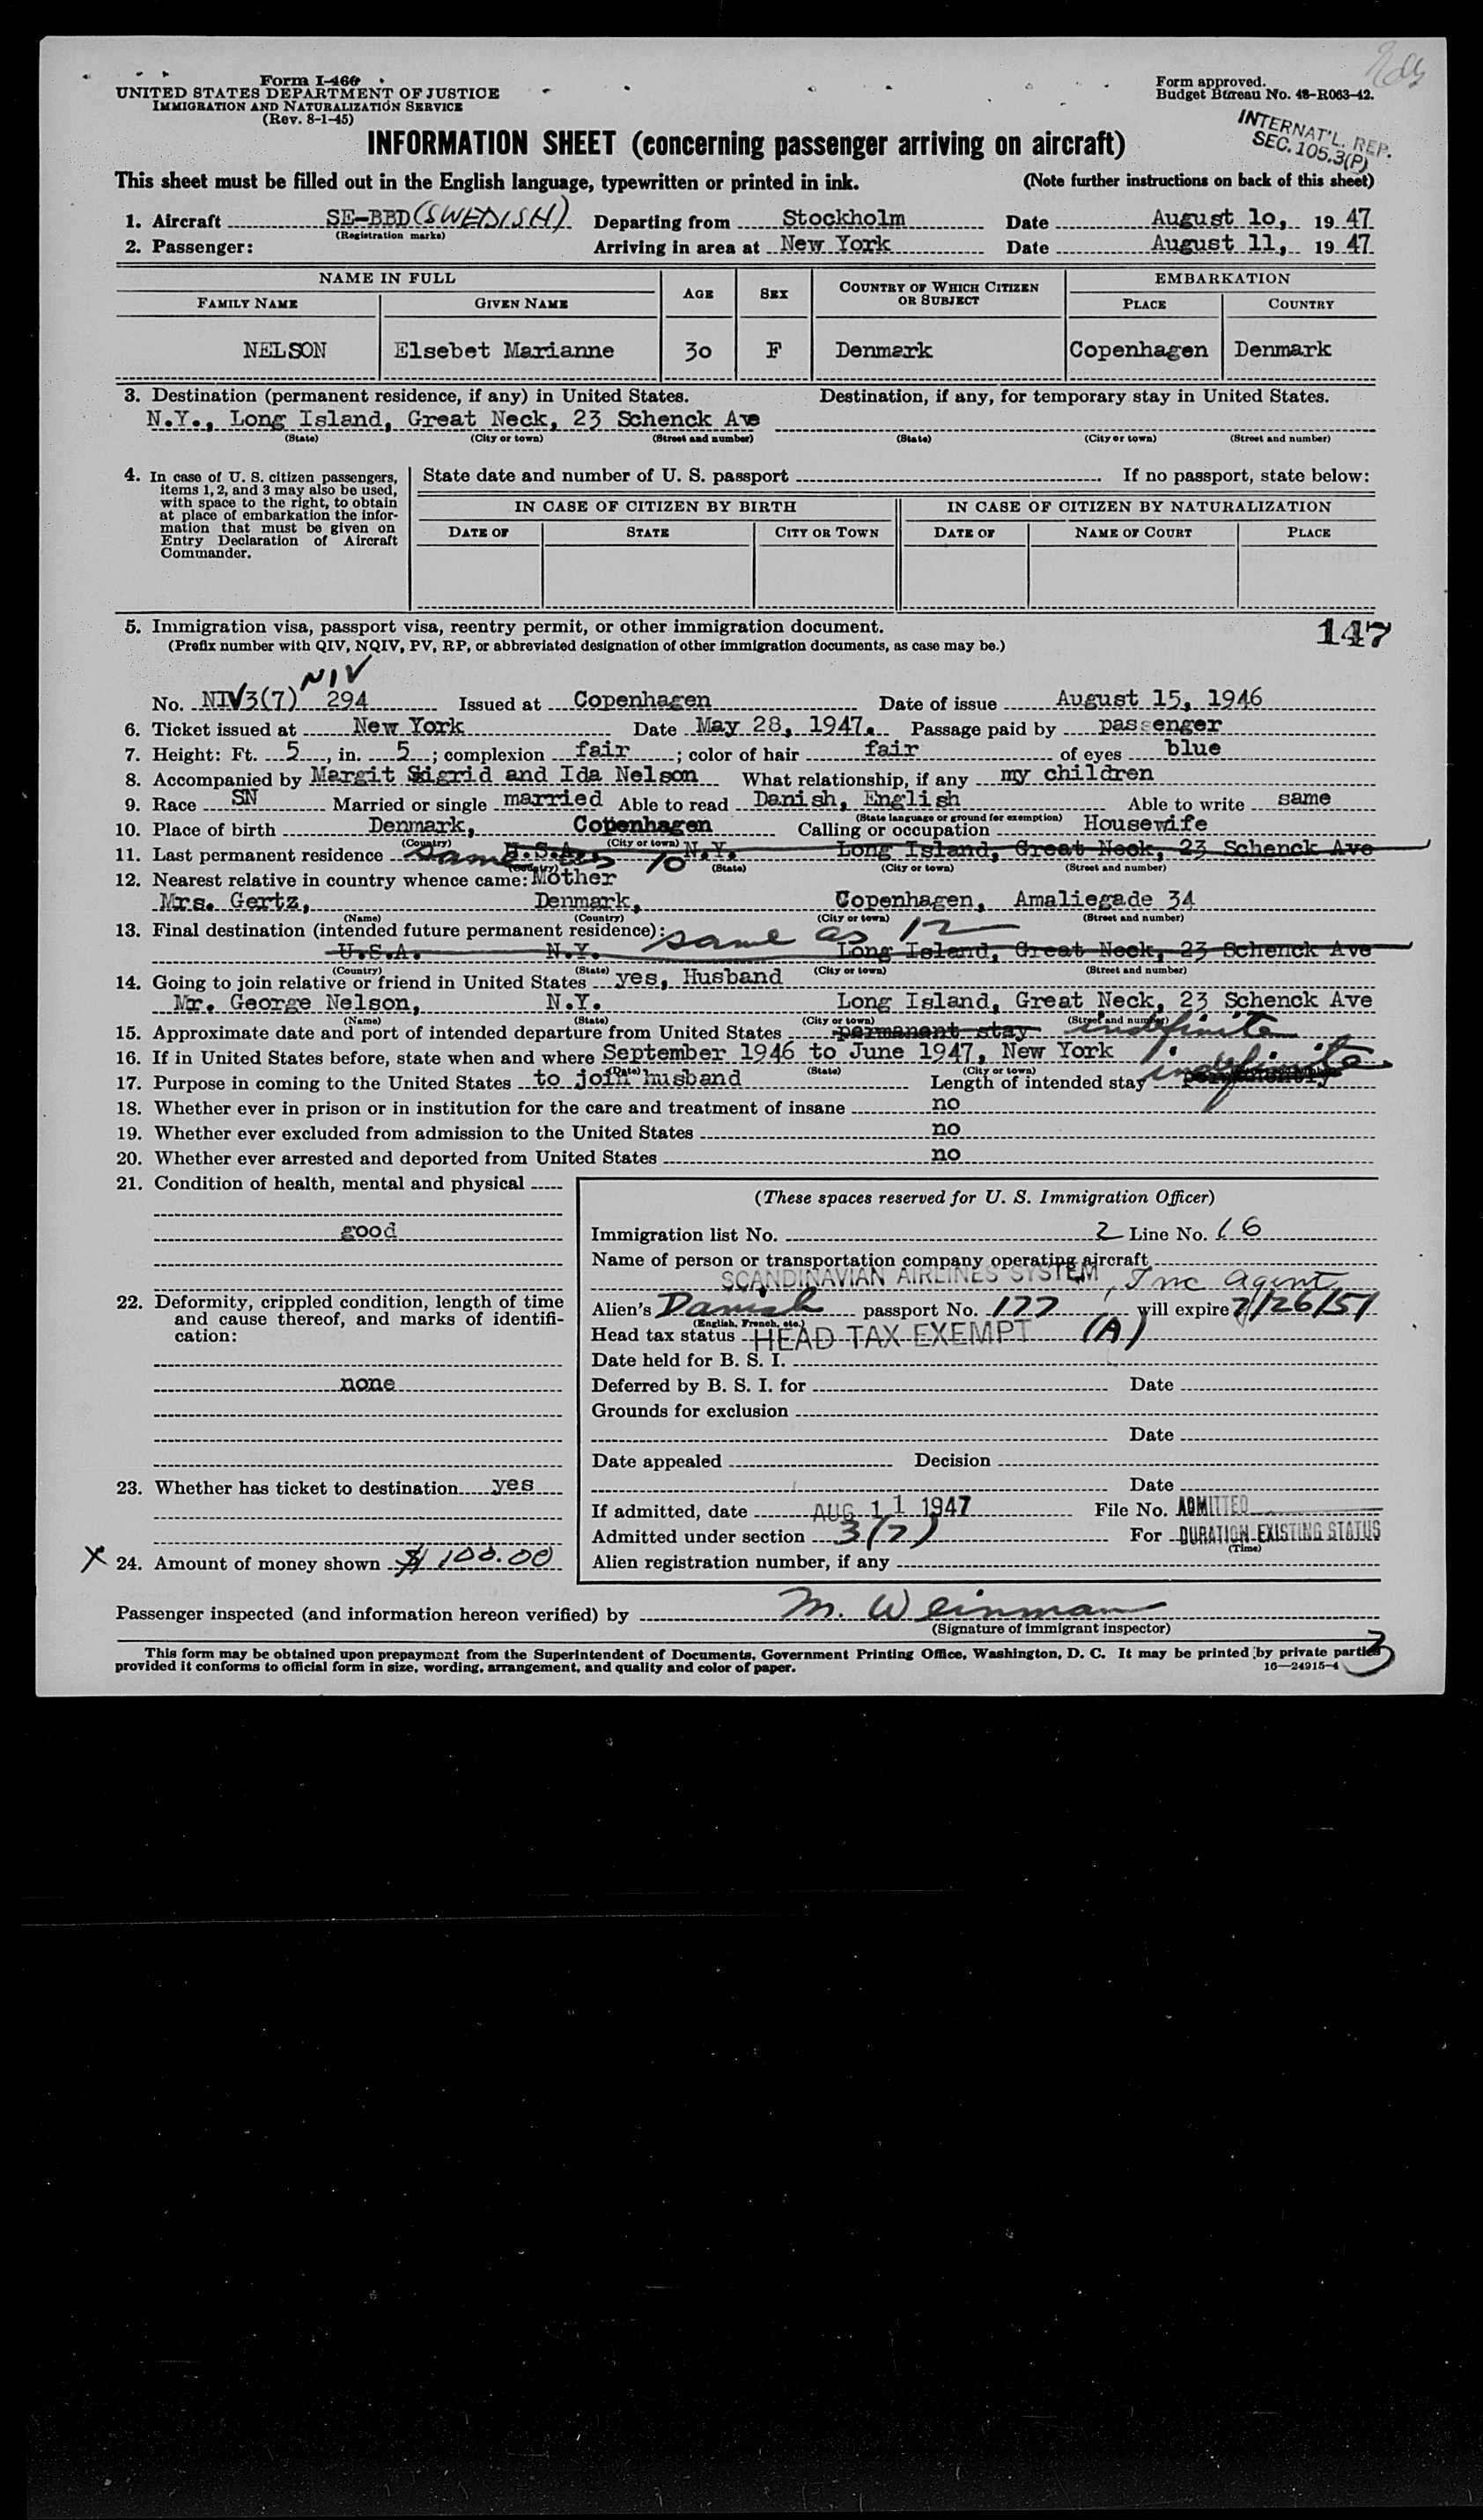 Form I-466
UNITED STATES DEPARTMENT OF JUSTICE
IMMIGRATION AND NATURALIZATION SERVICE
(Rev. 8-1-45)
Form approved.
Budget Bureau No. 43-R063-42.
INTERNAT'L. REP.
SEC. 105.3(P)
INFORMATION SHEET (concerning passenger arriving on aircraft)
This sheet must be filled out in the English language, typewritten or printed in ink. (Note further instructions on back of this sheet)
1. Aircraft SE-BBD (SWEDISH) Departing from Stockholm Date August 1o, 19 47
(Registration marks)
2. Passenger: Arriving in area at New York Date August 11, 19 47
NAME IN FULL AGE SEX COUNTRY OF WHICH CITIZEN OR SUBJECT EMBARKATION
FAMILY NAME GIVEN NAME PLACE COUNTRY
NELSON Elsebet Marianne 3o F Denmark Copenhagen Denmark
3. Destination (permanent residence, if any) in United States. Destination, if any, for temporary stay in United States.
N.Y., Long Island, Great Neck, 23 Schenck Ave
(State) (City or town) (Street and number) (State) (City or town) (Street and number)
4. In case of U. S. citizen passengers, items 1, 2, and 3 may also be used, with space to the right, to obtain at place of embarkation the information that must be given on Entry Declaration of Aircraft Commander.
State date and number of U. S. passport If no passport, state below:
IN CASE OF CITIZEN BY BIRTH IN CASE OF CITIZEN BY NATURALIZATION
DATE OF STATE CITY OR TOWN DATE OF NAME OF COURT PLACE
5. Immigration visa, passport visa, reentry permit, or other immigration document.
(Prefix number with QIV, NQIV, PV, RP, or abbreviated designation of other immigration documents, as case may be.)
147
NIV
No. NIV3(7) 294 Issued at Copenhagen Date of issue August 15, 1946
6. Ticket issued at New York Date May 28, 1947. Passage paid by passenger
7. Height: Ft. 5, in. 5; complexion fair; color of hair fair of eyes blue
8. Accompanied by Margit Sigrid and Ida Nelson What relationship, if any my children
9. Race SN Married or single married Able to read Danish, English Able to write same
(State language or ground for exemption)
10. Place of birth Denmark, Copenhagen Calling or occupation Housewife
(Country) (City or town)
11. Last permanent residence same as 10 U.S.A. N.Y. Long Island, Great Neck, 23 Schenck Ave
(Country) (State) (City or town) (Street and number)
12. Nearest relative in country whence came: Mother
Mrs. Gertz, Denmark, Copenhagen, Amaliegade 34
(Name) (Country) (City or town) (Street and number)
13. Final destination (intended future permanent residence): same as 12
U.S.A. N.Y. Long Island, Great Neck, 23 Schenck Ave
(Country) (State) (City or town) (Street and number)
14. Going to join relative or friend in United States yes, Husband
Mr. George Nelson, N.Y. Long Island, Great Neck, 23 Schenck Ave
(Name) (State) (City or town) (Street and number)
15. Approximate date and port of intended departure from United States permanent stay indefinite
16. If in United States before, state when and where September 1946 to June 1947, New York
(Date) (State) (City or town)
17. Purpose in coming to the United States to join husband Length of intended stay permanently indefinite
18. Whether ever in prison or in institution for the care and treatment of insane no
19. Whether ever excluded from admission to the United States no
20. Whether ever arrested and deported from United States no
21. Condition of health, mental and physical
good
22. Deformity, crippled condition, length of time and cause thereof, and marks of identification:
none
23. Whether has ticket to destination yes
X 24. Amount of money shown $100.00
(These spaces reserved for U. S. Immigration Officer)
Immigration list No. 2 Line No. 16
Name of person or transportation company operating aircraft
SCANDINAVIAN AIRLINES SYSTEM, Inc Agent
Alien's Danish passport No. 177 will expire 7/26/51
(English, French, etc.)
Head tax status HEAD TAX EXEMPT (A)
Date held for B. S. I.
Deferred by B. S. I. for Date
Grounds for exclusion
Date
Date appealed Decision
Date
If admitted, date AUG 11 1947 File No. ADMITTED
Admitted under section 3(7) For DURATION EXISTING STATUS
(Time)
Alien registration number, if any
Passenger inspected (and information hereon verified) by M. Weinman
(Signature of immigrant inspector)
This form may be obtained upon prepayment from the Superintendent of Documents, Government Printing Office, Washington, D. C. It may be printed by private parties
provided it conforms to official form in size, wording, arrangement, and quality and color of paper. 16—24915-4
3